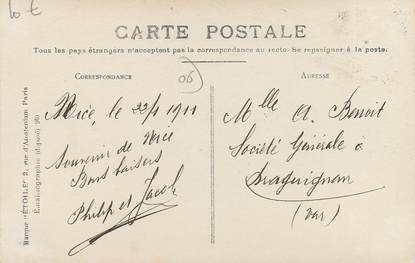 10 €
CARTE POSTALE
Tous les pays étrangers n'acceptent pas la correspondance au recto. Se renseigner à la poste.
CORRESPONDANCE
06
ADRESSE
Nice, le 22/1 1911
Souvenir de Nice
Bons baisers
Philip et Jacob
Mlle A. Benoit
Société Générale à
Draguignan
(Var)
"ÉTOILE" 2, rue d'Amsterdam Paris